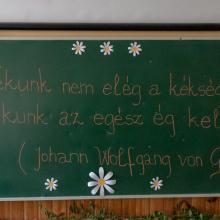 ékunk nem elég a kéksé
kunk az egész ég kel
(Johann Wolfgang von G